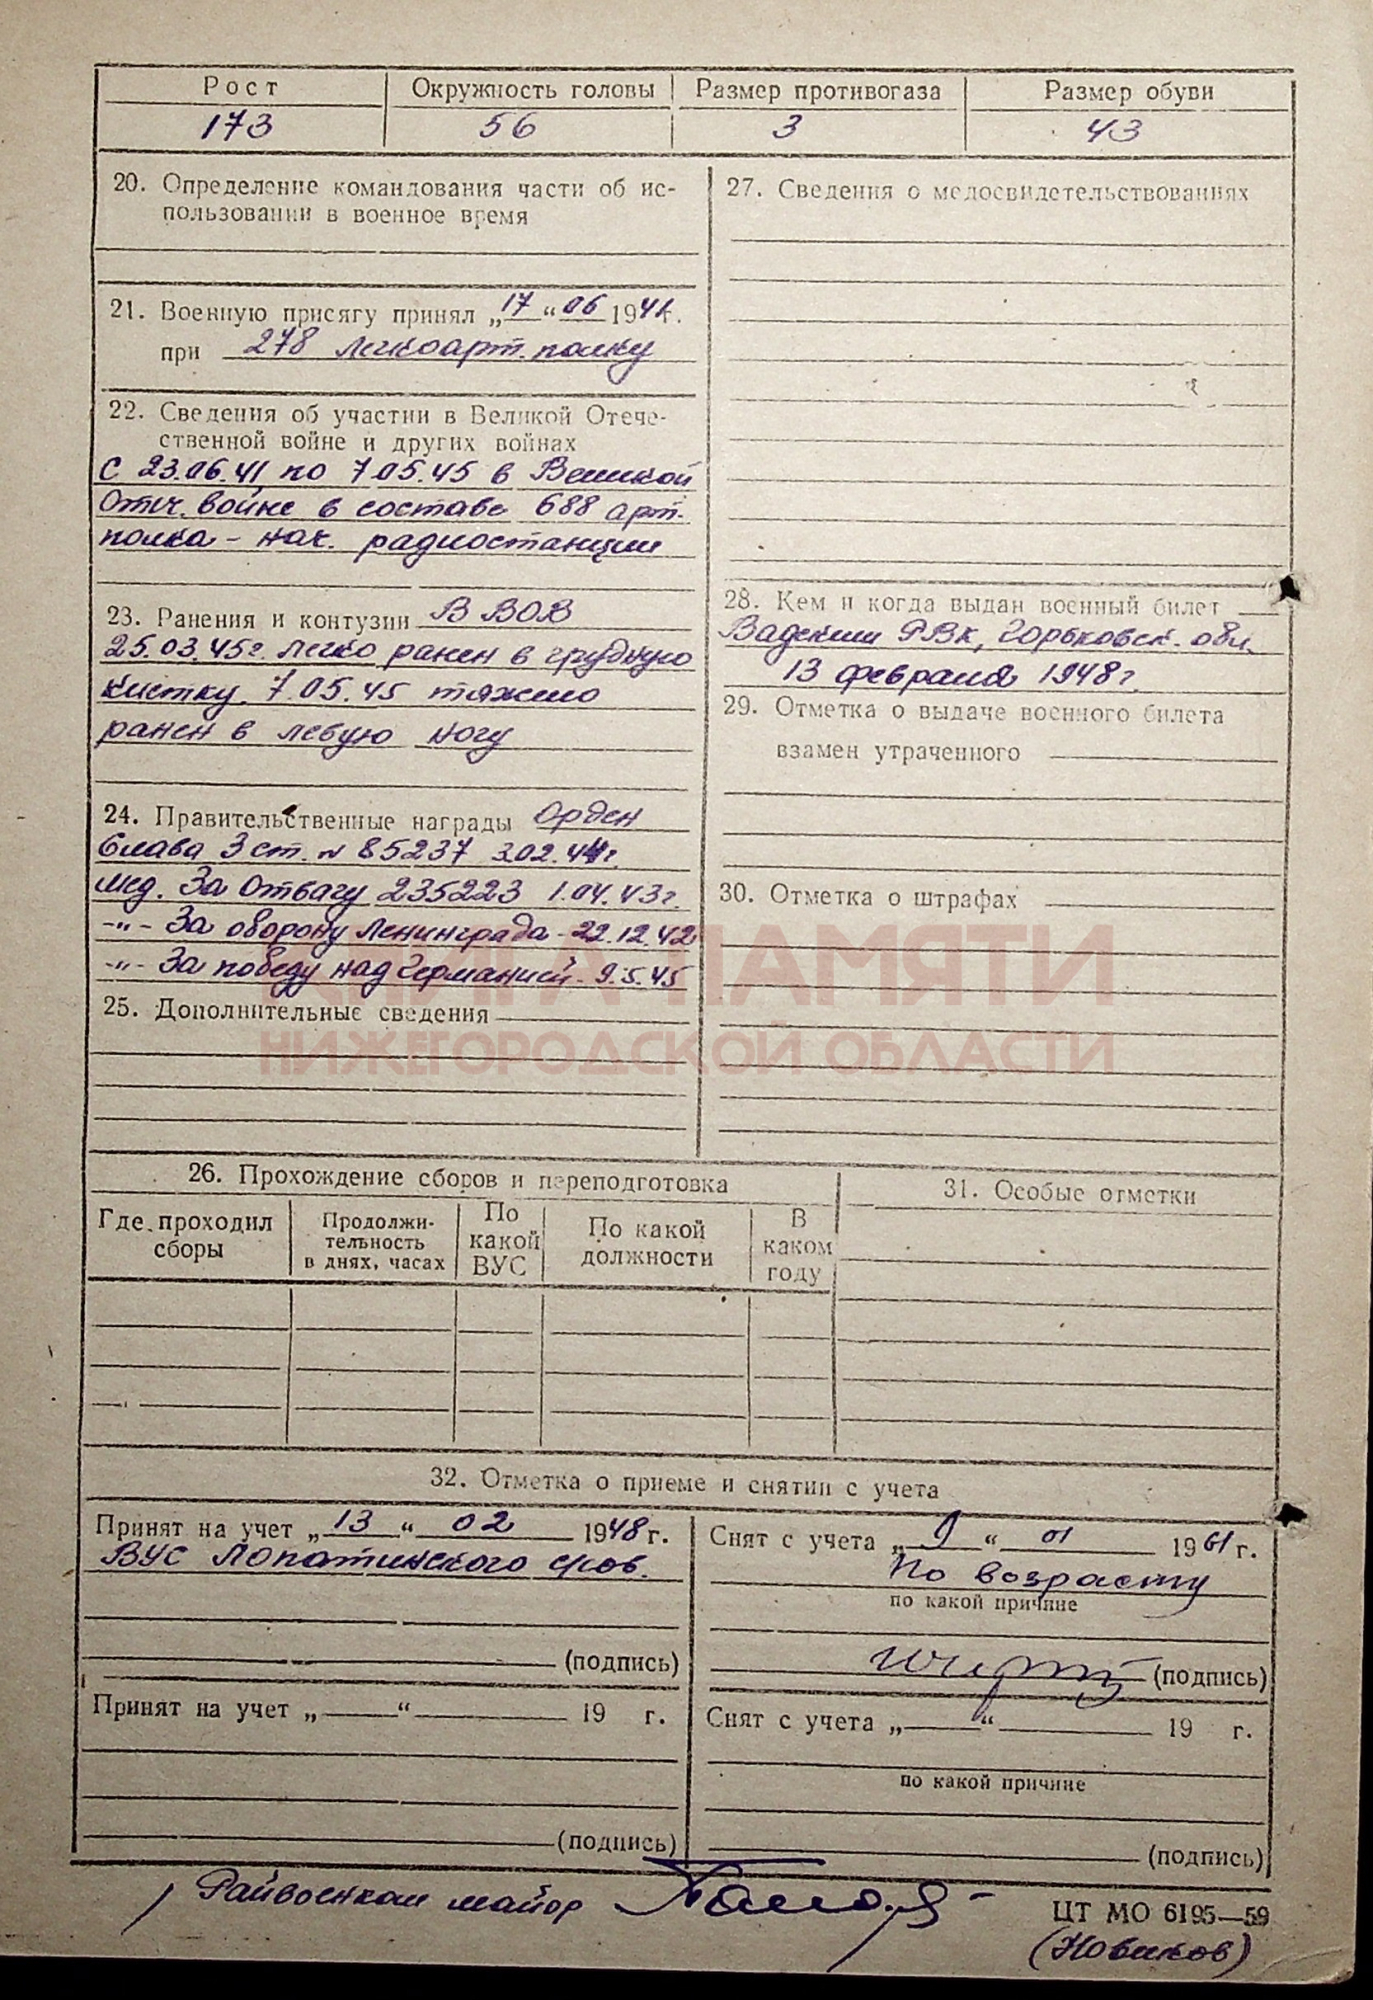 Рост Окружность головы Размер противогаза Размер обуви
173 56 3 43
20. Определение командования части об ис-
пользовании в военное время
21. Военную присягу принял „17“ 06 1941г.
при 278 легкоарт. полку
22. Сведения об участии в Великой Отече-
ственной войне и других войнах
С 23.06.41 по 7.05.45 в Великой
Отеч. войне в составе 688 арт.
полка - нач. радиостанции
23. Ранения и контузии В ВОВ
25.03.45г. легко ранен в грудную
клетку. 7.05.45 тяжело
ранен в левую ногу
24. Правительственные награды Орден
Слава 3 ст. № 85237 3.02.44г.
Мед. За Отвагу 235223 1.04.43г.
-"- За оборону Ленинграда - 22.12.42
-"- За победу над Германией - 9.5.45
25. Дополнительные сведения
27. Сведения о медосвидетельствованиях
28. Кем и когда выдан военный билет
Вадским РВК, Горьковск. обл.
13 февраля 1948г.
29. Отметка о выдаче военного билета
взамен утраченного
30. Отметка о штрафах
КНИГА ПАМЯТИ
НИЖЕГОРОДСКОЙ ОБЛАСТИ
26. Прохождение сборов и переподготовка
Где проходил сборы
Продолжи-
тельность
в днях, часах
По
какой
ВУС
По какой
должности
В
каком
году
31. Особые отметки
32. Отметка о приеме и снятии с учета
Принят на учет „13“ 02 1948г.
ВУС Лопатинского с/сов.
(подпись)
Снят с учета „9“ 01 1961г.
По возрасту
по какой причине
(подпись)
Принят на учет „ “ 19 г.
(подпись)
Снят с учета „ “ 19 г.
по какой причине
(подпись)
Райвоенком майор
ЦТ МО 6195—59
(Новиков)